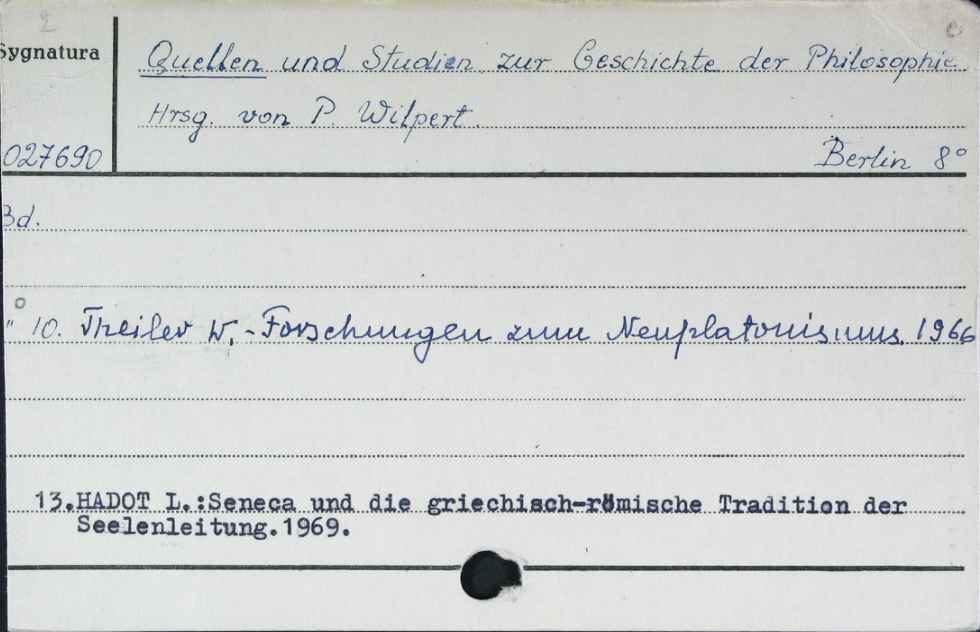 2
Sygnatura
Quellen und Studien zur Geschichte der Philosophie
Hrsg. von P. Wilpert.
027690
Berlin 8°
Bd.
" 10. Theiler W. - Forschungen zum Neuplatonismus. 1966
13. HADOT L.:Seneca und die griechisch-römische Tradition der
Seelenleitung.1969.